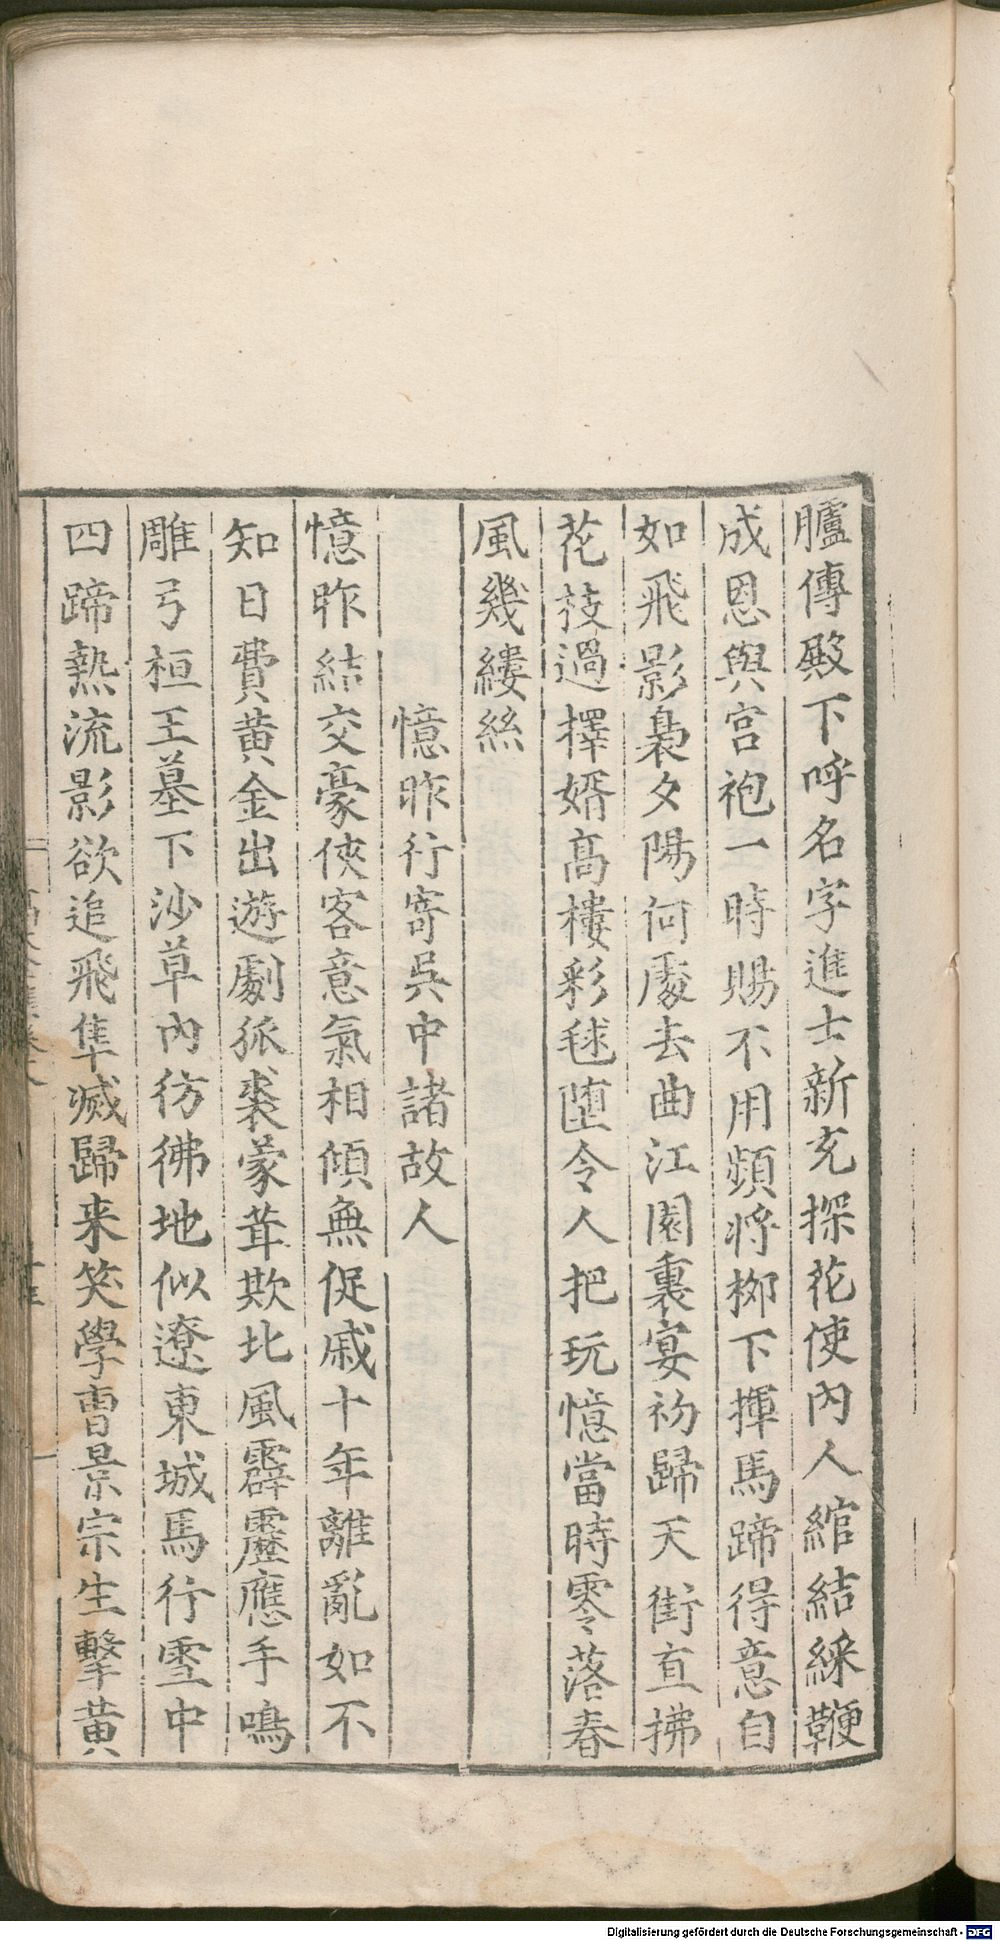 臚傳殿下呼名字進士新充探花使內人綰結綵鞭
成恩與宮袍一時賜不用頻將栁下揮馬蹄得意自
如飛影裊夕陽何處去曲江園裏宴初歸天街直拂
花枝過擇婿髙樓彩毬墮令人把玩憶當時零落春
風幾縷絲
憶昨行寄吳中諸故人
憶昨結交豪俠客意氣相傾無促戚十年離亂如不
知日費黄金出遊劇狐裘蒙茸欺北風霹靂應手鳴
雕弓桓王墓下沙草內彷彿地似遼東城馬行雪中
四蹄熱流影欲追飛隼滅歸来笑學曹景宗生擊黄
Digitalisierung gefördert durch die Deutsche Forschungsgemeinschaft - DFG